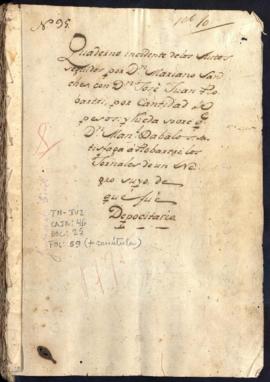 Nº 95.
Quaderno incidente de los Autos
seguidos por Dn. Mariano San
chez, con Dn. José Juan
por Cantidad de
pesos; y
Dn. Manl. Dabalos
tisfaga á los
Jornales de un Ne
gro suyo de
que fué
Depocitario
TH-JU2
CAJA: 46
DOC: 23
FOL: 59 (+ carátula)